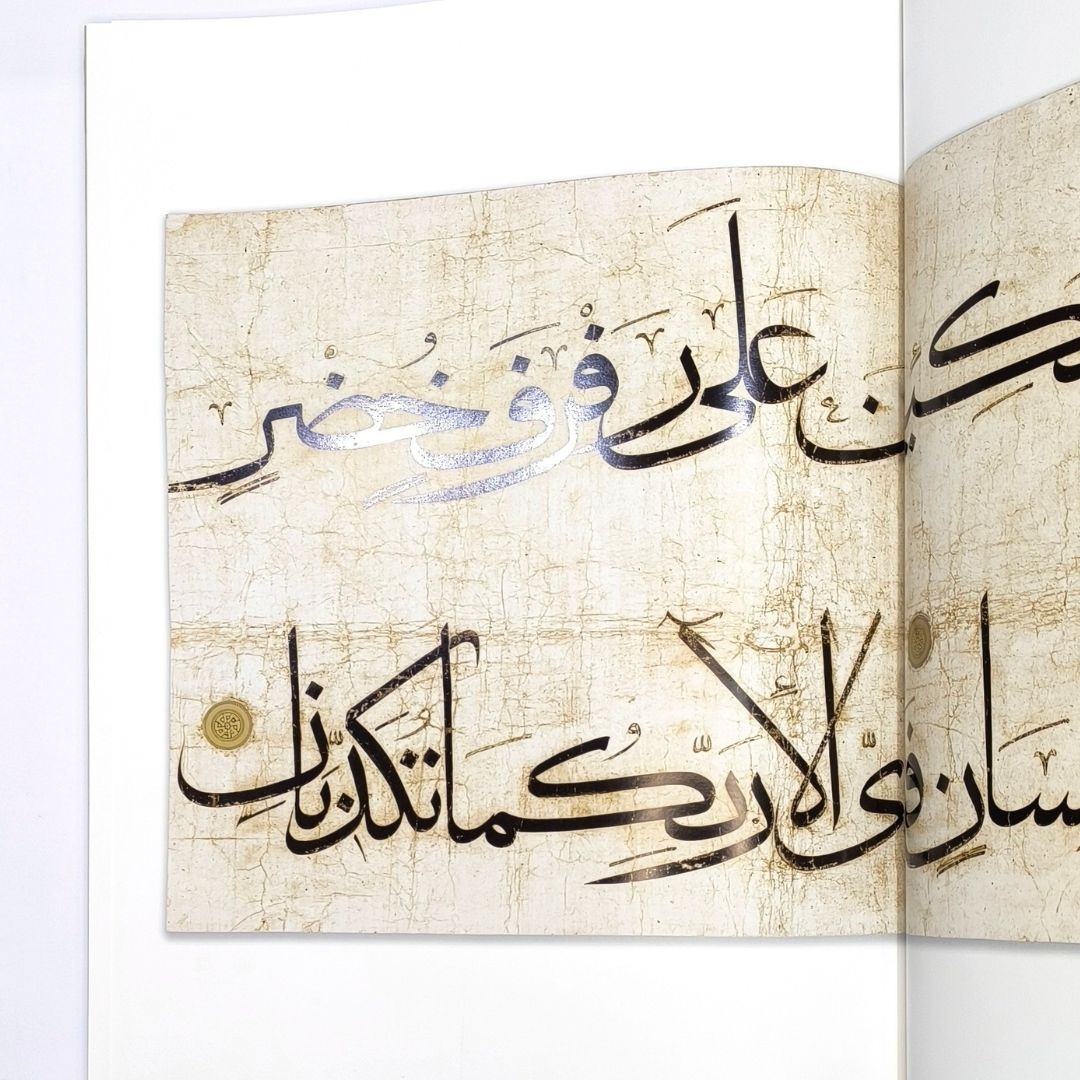 كئين عَلَى رَفْرَفٍ خُضْرٍ
سانٍ فبأىِّ الأءِ رَبِّكُمَا تُكَذِّبَانِ